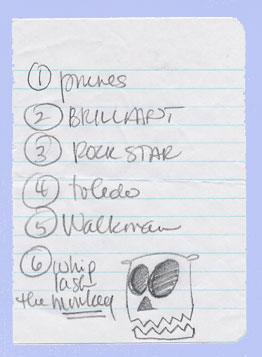 1 prunes
2 BRILLIANT
3 ROCK STAR
4 toledo
5 Walkman
6 whip
lash
the monkey